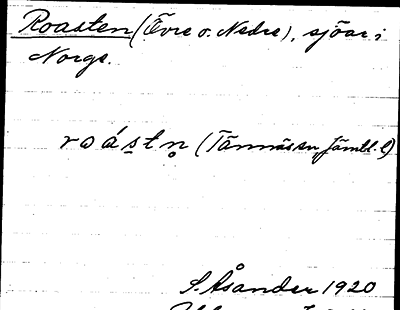 Roasten (Övre o. Nedre), sjöar i
Norge.
roástn̥ (Tännäs sn, Jämtl. l)
S. Åsander 1920